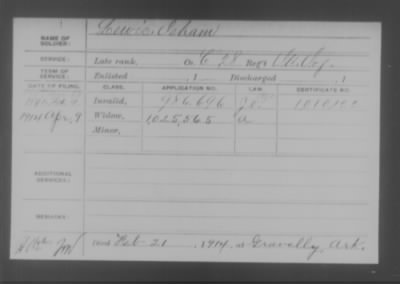 NAME OF SOLDIER: Lewis Isham
SERVICE: Late rank, Co. C 28 Reg't
TERM OF SERVICE: Enlisted , 1 Discharged , 1
DATE OF FILING. CLASS. APPLICATION NO. LAW. CERTIFICATE NO.
Invalid, 986,696
1914 Apr. 9 Widow, 1,025,565 a
Minor,
ADDITIONAL SERVICES:
REMARKS:
Died Feb 21 1914, at Gravelly, Ark.